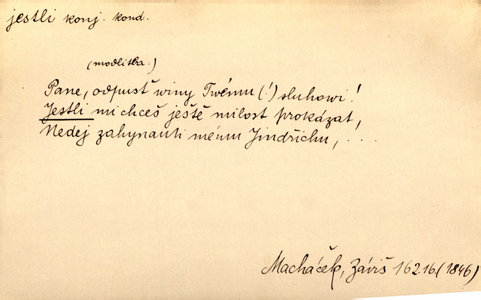 jestli konj. kond.
(modlitba.)
Pane, odpusť winy Twému (!) sluhowi!
Jestli mi chceš ještě milost prokázat,
Nedej zahynauti mému Jindřichu, . . .
Macháček, Záviš 162.16 (1846)